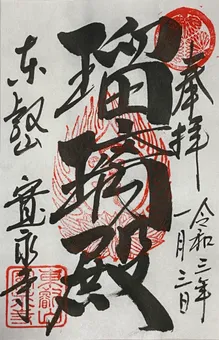 奉拝
令和三年
一月三日
瑠璃殿
東叡山
寛永寺